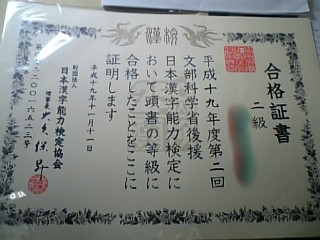 漢検
合格証書
二級
平成十九年度第二回
文部科学省後援
日本漢字能力検定に
おいて頭書の等級に
合格したことをここに
証明します
平成十九年十一月十一日
財団法人
日本漢字能力検定協会
理事長